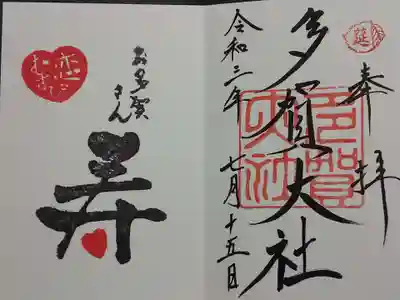 延
奉拝
多賀大社
多賀大社
令和三年 七月十五日
お多賀さん
恋むすび
寿